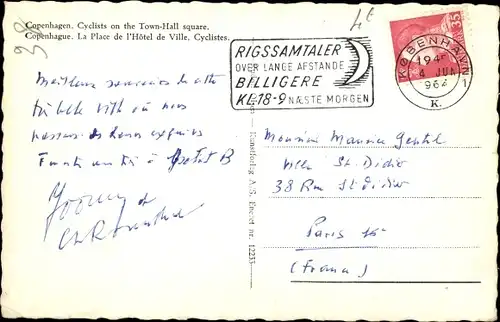 Copenhagen. Cyclists on the Town-Hall square.
Copenhague. La Place de l'Hôtel de Ville, Cyclistes.
RIGSSAMTALER
OVER LANGE AFSTANDE
BILLIGERE
KL·18-9 NÆSTE MORGEN
KØBENHAVN
4 JUN
1
K.
35
Meilleurs souvenirs de cette
très belle ville où nous
passons des heures exquises
Monsieur Maurice Gentil
Villa St. Didier
38 Rue St. Didier
Paris 16e
(France)
Kunstforlag A/S Eneret nr. 12235